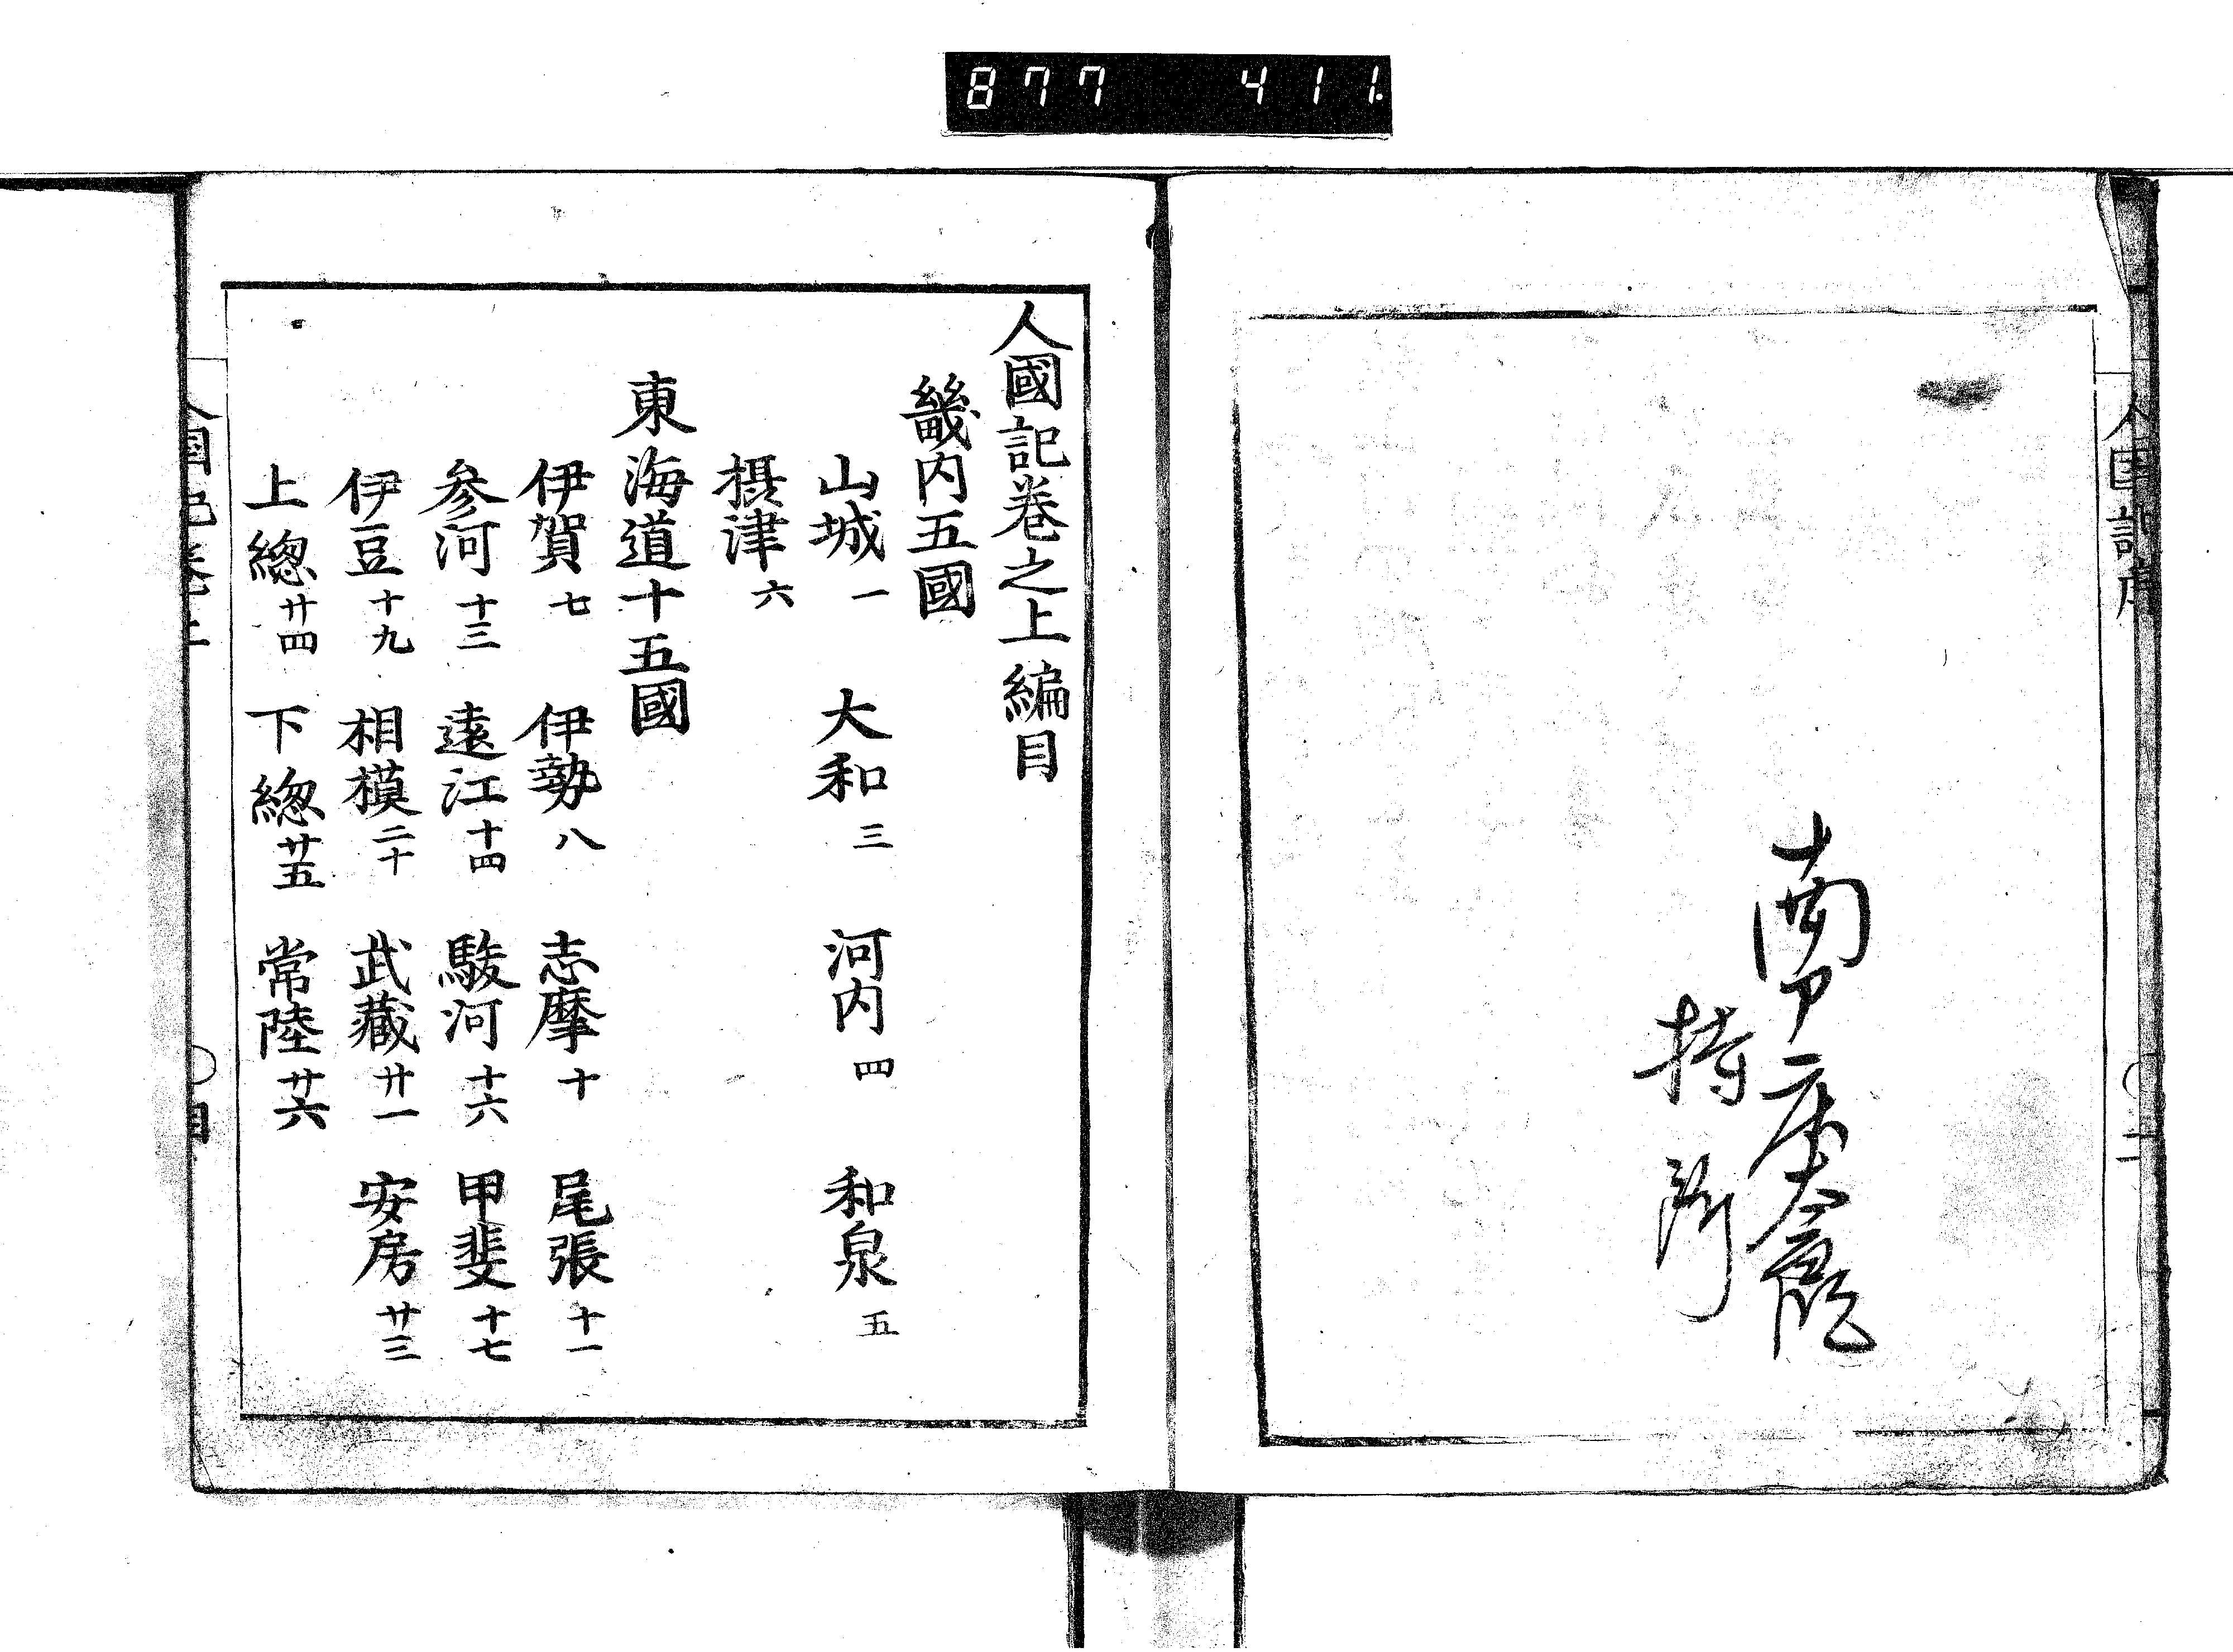 877 411.
人國記序
二
持所
人國記巻之上 編目
畿内五國
山城 一 大和 三 河内 四 和泉 五
摂津 六
東海道十五國
伊賀 七 伊勢 八 志摩 十 尾張 十一
参河 十三 遠江 十四 駿河 十六 甲斐 十七
伊豆 十九 相模 二十 武蔵 廿一 安房 廿三
上總 廿四 下總 廿五 常陸 廿六
人國記巻上
目